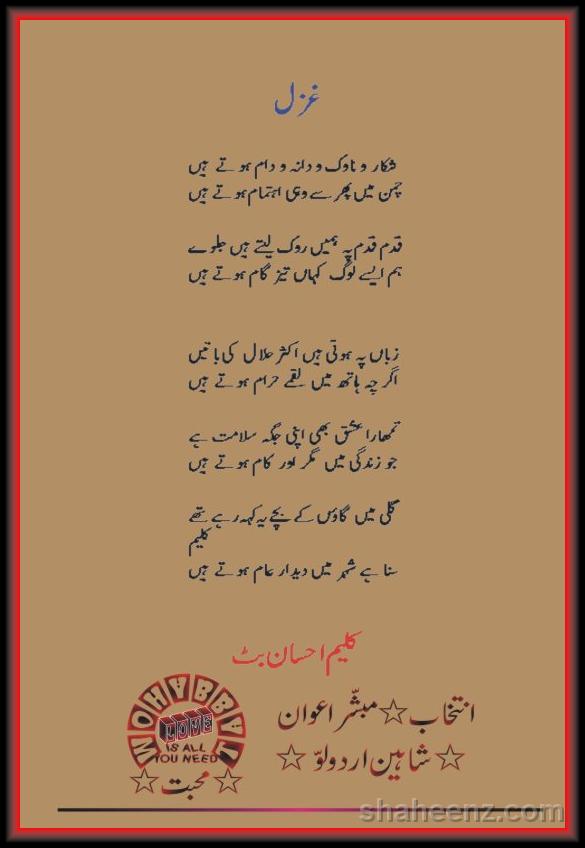 غزل
شکار و ناوک و دانہ و دام ہوتے ہیں
چمن میں پھر سے وہی اہتمام ہوتے ہیں
قدم قدم پہ ہمیں روک لیتے ہیں جلوے
ہم ایسے لوگ کہاں تیز گام ہوتے ہیں
زباں پہ ہوتی ہیں اکثر حلال کی باتیں
اگرچہ ہاتھ میں لقمے حرام ہوتے ہیں
تمھارا عشق بھی اپنی جگہ سلامت ہے
جو زندگی میں مگر اور کام ہوتے ہیں
گلی میں گاؤں کے بچے یہ کہہ رہے تھے
کلیم
سنا ہے شہر میں دیدار عام ہوتے ہیں
کلیم احسان بٹ
انتخاب☆مبشّر اعوان
☆شاہین اردو لوّ☆
MOHABBAT
LOVE
IS ALL
YOU NEED
☆محبت☆
shaheenz.com